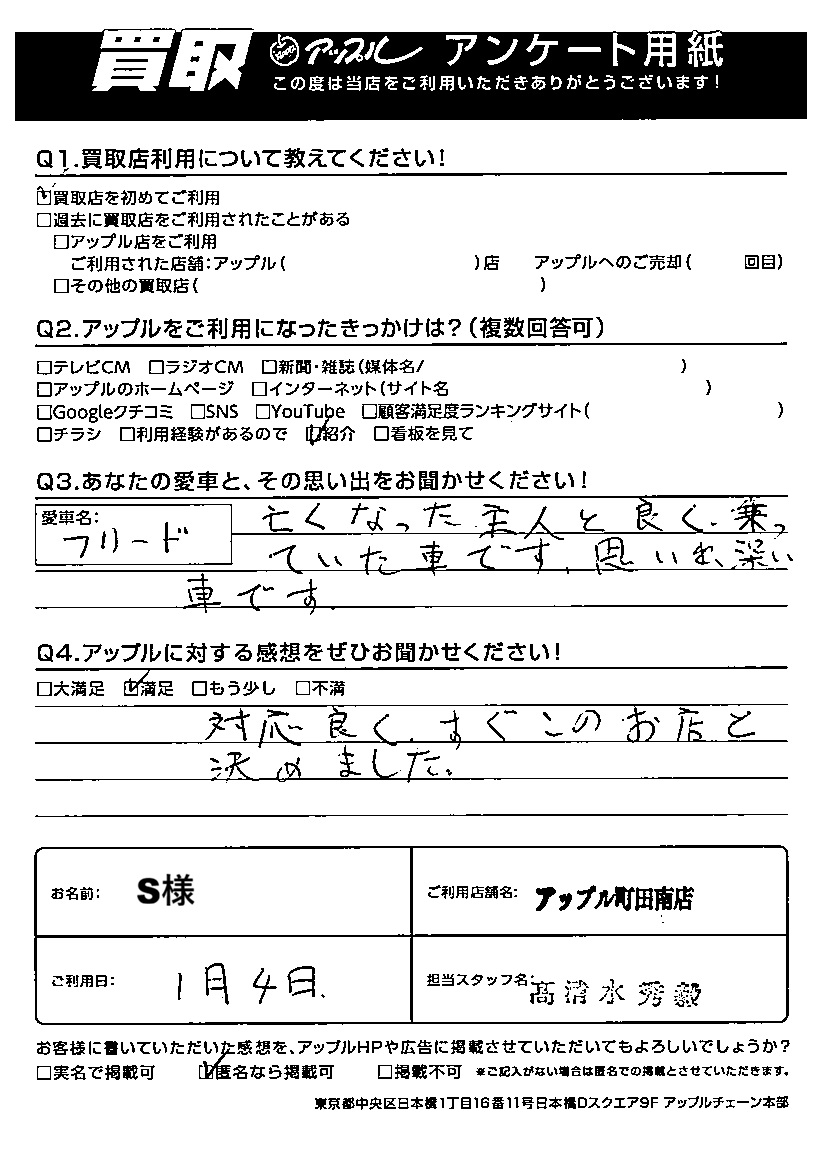 買取 アップル アンケート用紙
この度は当店をご利用いただきありがとうございます!
Q1.買取店利用について教えてください!
☑買取店を初めてご利用
□過去に買取店をご利用されたことがある
□アップル店をご利用
ご利用された店舗:アップル( )店 アップルへのご売却( 回目)
□その他の買取店( )
Q2.アップルをご利用になったきっかけは?(複数回答可)
□テレビCM □ラジオCM □新聞・雑誌(媒体名/ )
□アップルのホームページ □インターネット(サイト名 )
□Googleクチコミ □SNS □YouTube □顧客満足度ランキングサイト( )
□チラシ □利用経験があるので ☑紹介 □看板を見て
Q3.あなたの愛車と、その思い出をお聞かせください!
愛車名:
フリード
亡くなった主人と良く、乗っ
ていた車です。思い出、深い
車です。
Q4.アップルに対する感想をぜひお聞かせください!
□大満足 ☑満足 □もう少し □不満
対応良く、すぐこのお店と
決めました。
お名前: S様
ご利用店舗名: アップル町田南店
ご利用日: 1月4日.
担当スタッフ名: 髙清水秀毅
お客様に書いていただいた感想を、アップルHPや広告に掲載させていただいてもよろしいでしょうか?
□実名で掲載可 ☑匿名なら掲載可 □掲載不可 ※ご記入がない場合は匿名での掲載とさせていただきます。
東京都中央区日本橋1丁目16番11号日本橋Dスクエア9F アップルチェーン本部